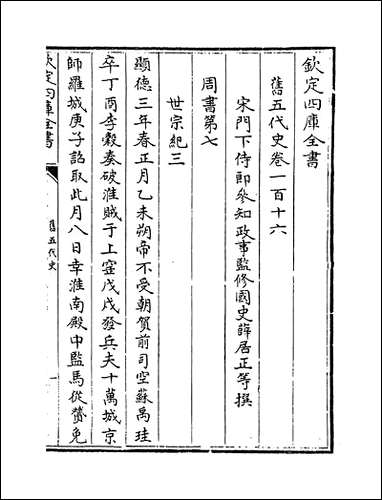 欽定四庫全書
舊五代史卷一百十六
宋門下侍郎參知政事監修國史薛居正等撰
周書第七
世宗紀三
顯德三年春正月乙未朔帝不受朝賀前司空蘇禹珪
卒丁丙李穀奏破淮賊于上窰戊戌發兵夫十萬城京
師羅城庚子詔取此月八日幸淮南殿中監馬從贇免
欽定四庫全書
舊五代史
一